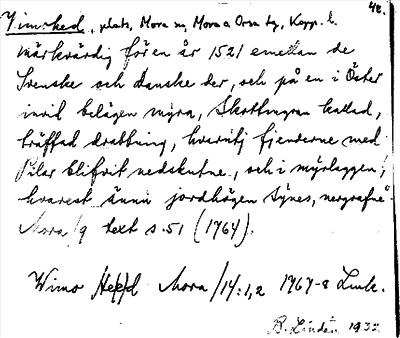 42.
Vimshed, plats, Mora sn, Mora o Orsa tg, Kopp. l.
märkvärdig för en år 1521 emellan de
Svenske och danske der, och på en i Öster
invid belägen myra, Skottmyran kallad,
träffad drabbning, hvarutj fjenderne med
Pilar blifvit nedskutne, och i myrlaggen,
hvarest ännu jordhögen synes, nergrafne"
Mora/9 text s. 51 (1764).
Wimo Hed Mora/14:1,2 1767-8 Lmk.
B. Lindén 1932.